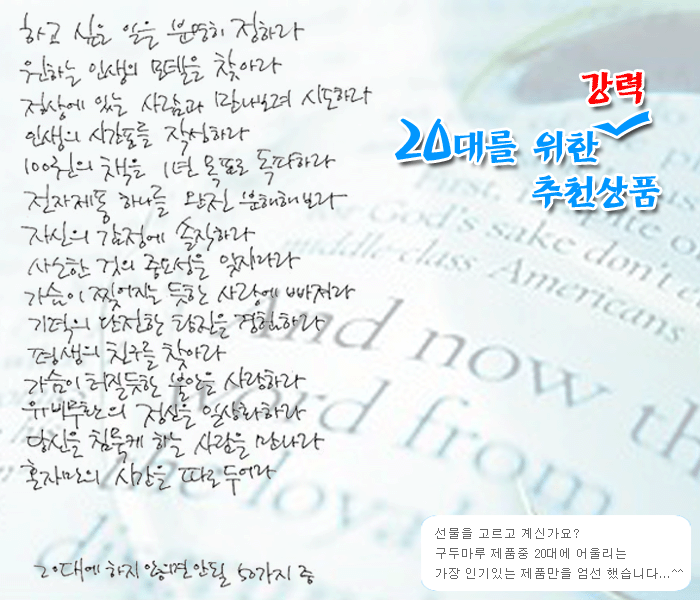 하고 싶은 일을 분명히 정하라
원하는 인생의 모델을 찾아라
정상에 있는 사람과 만나보려 시도하라
인생의 시간표를 작성하라
100권의 책을 1년 목표로 독파하라
전자제품 하나를 완전 분해해보라
자신의 감정에 솔직하라
사소한 것의 중요성을 잊지마라
가슴이 찢어지는 듯한 사랑에 빠져라
기력의 완전한 탕진을 경험하라
평생의 친구를 찾아라
가슴이 터질듯한 불안을 사랑하라
유비무환의 정신을 일상화하라
당신을 침묵케 하는 사람을 만나라
혼자만의 시간을 따로 두어라
20대에 하지 않으면 안될 50가지 중
강력
20대를 위한
추천상품
And now th
word from
the loya
God's sake don't
middle-class Americans
선물을 고르고 계신가요?
구두마루 제품중 20대에 어울리는
가장 인기있는 제품만을 엄선 했습니다...^^